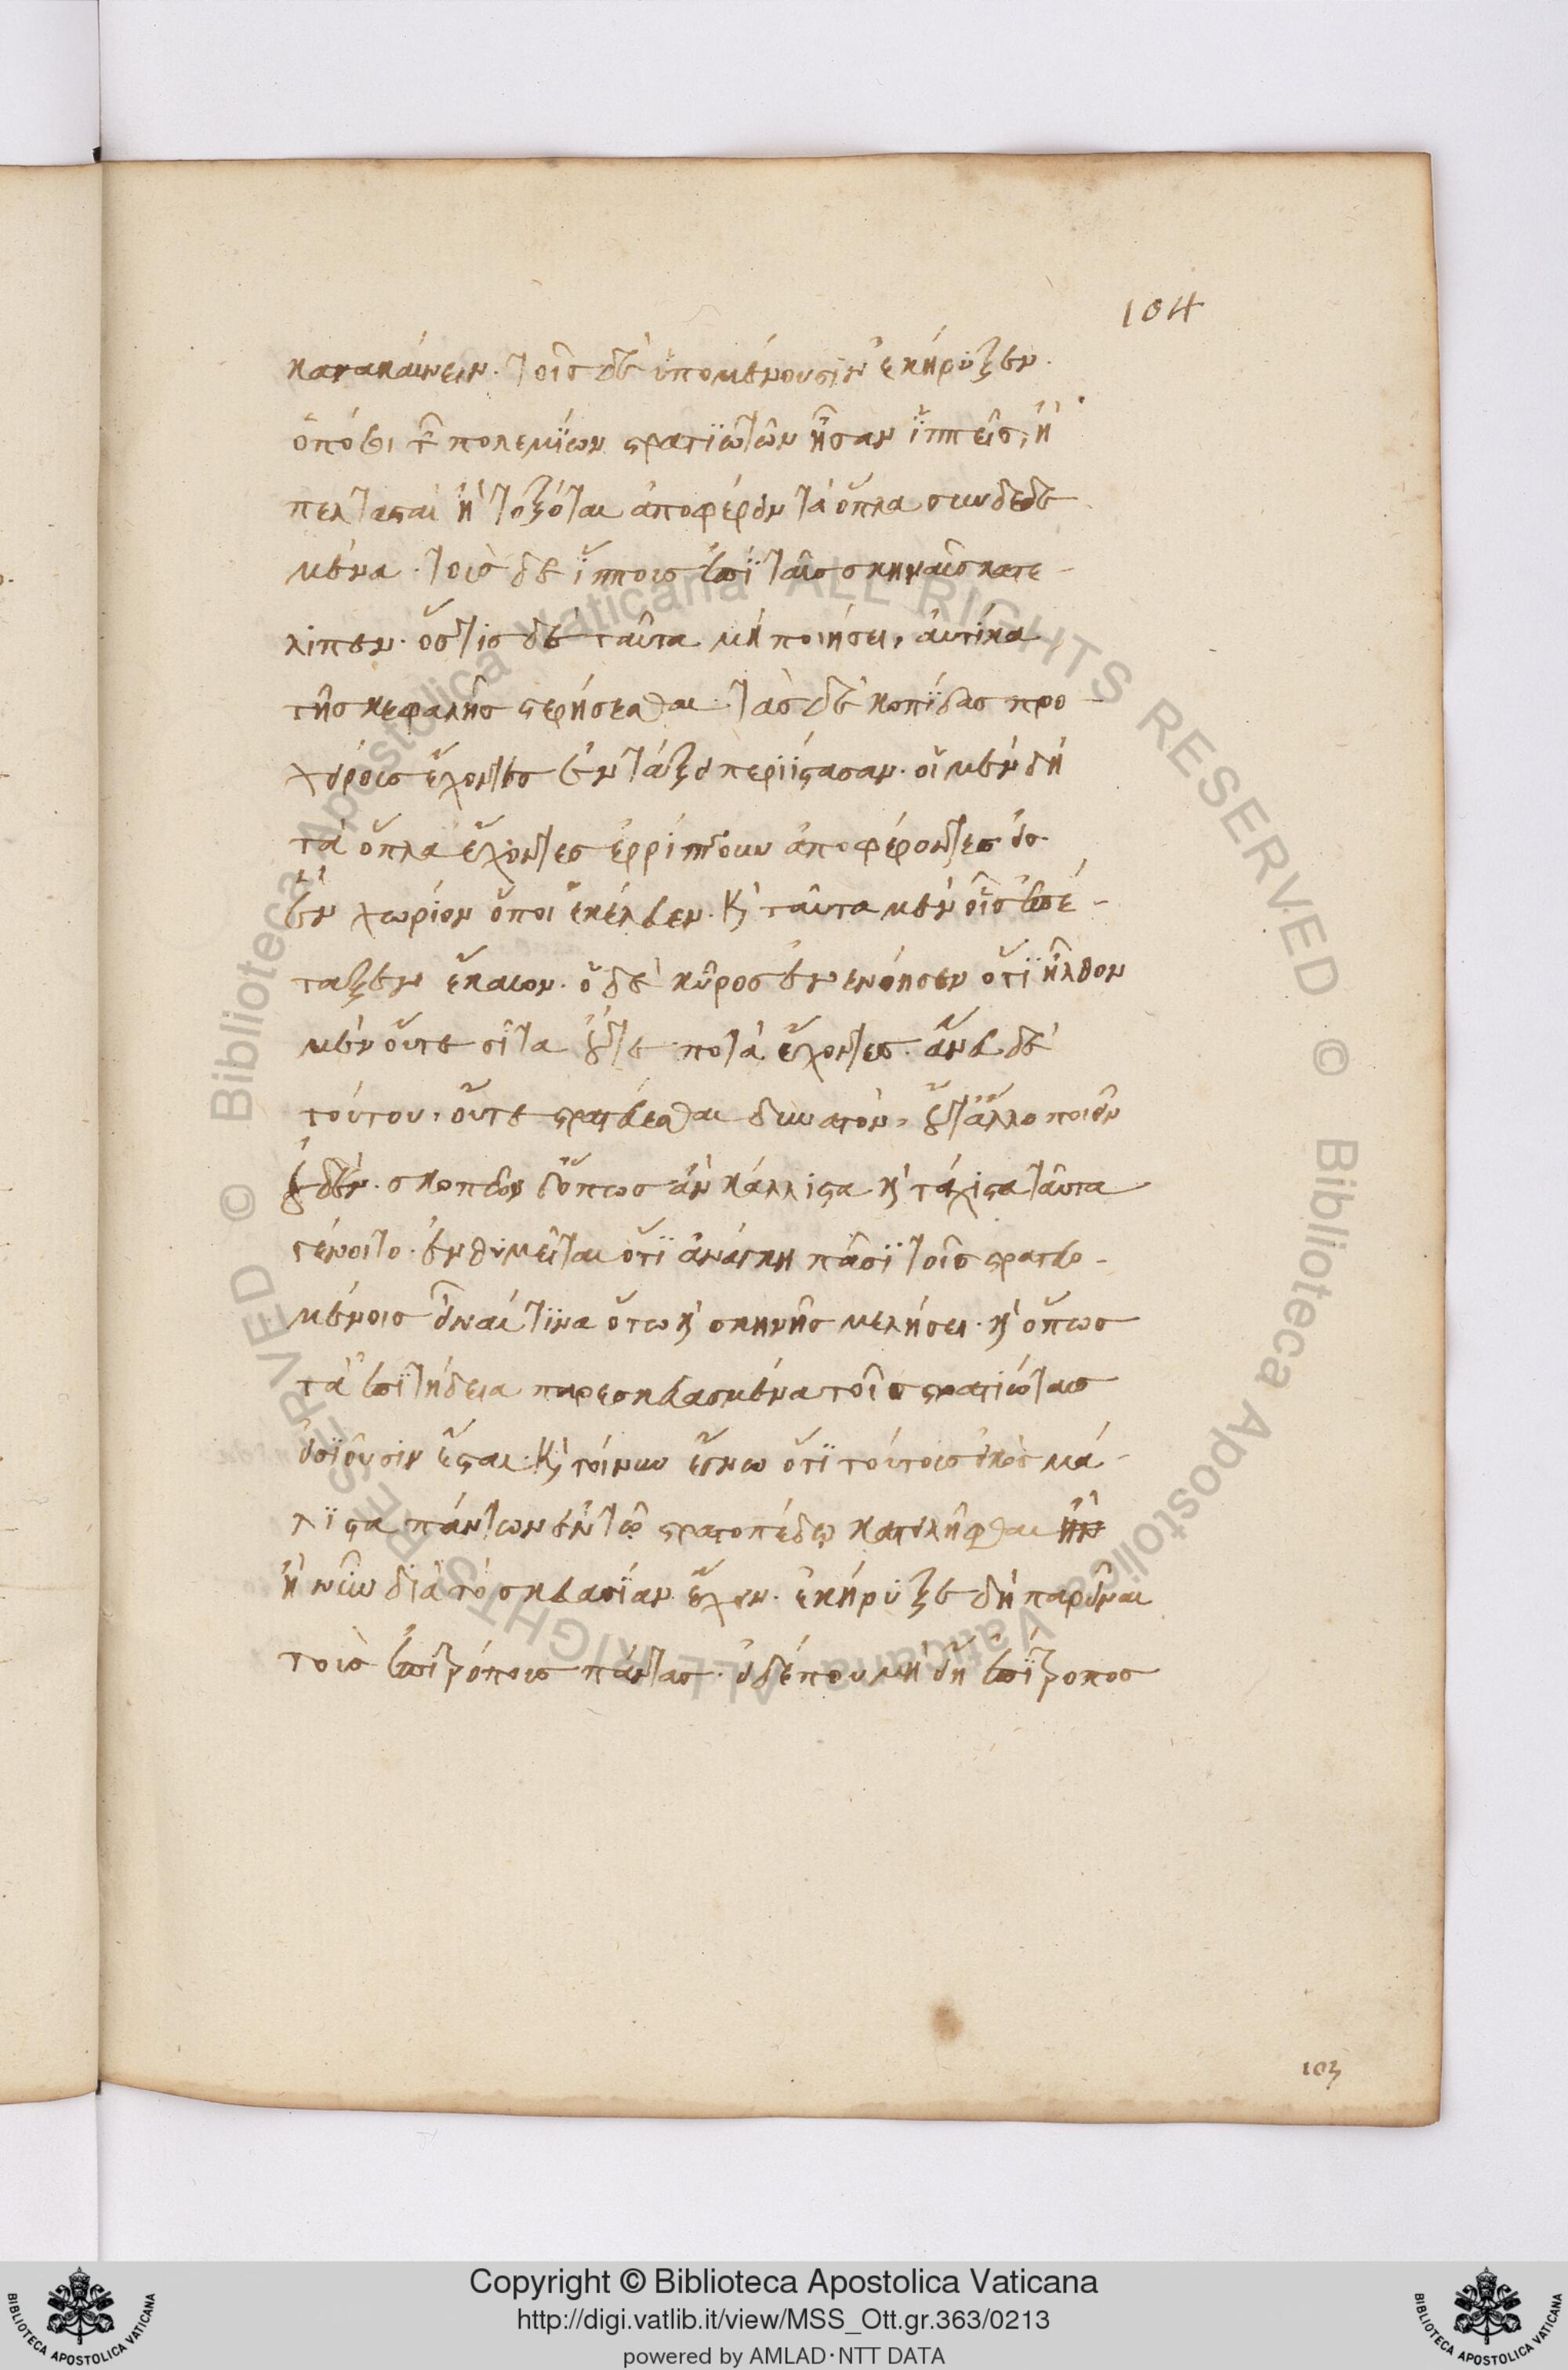 104
κατακαίνειν. τοῖς δὲ ὑπομένουσιν ἐκήρυξεν.
ὁπόσοι τῶν πολεμίων στρατιωτῶν ἦσαν ἱππεῖς, ἢ
πελτασταὶ ἢ τοξόται ἀποφέρειν τὰ ὅπλα συνδεδε
μένα. τοὺς δὲ ἵππους ἐπὶ ταῖς σκηναῖς κατε-
λιπεν. ὅστις δὲ ταῦτα μὴ ποιήσει, αὐτίκα
τῆς κεφαλῆς στερήσεσθαι. τὰς δὲ κοπίδας προ-
χείρους ἔχοντες ἐν τάξει περιίστασαν. οἱ μὲν δὴ
τὰ ὅπλα ἔχοντες ἐρρίπτουν ἀποφέροντες εἰς
ἓν χωρίον ὅποι ἐκέλευεν. καὶ ταῦτα μὲν οἷς ἐπέ-
ταξεν ἔκαιον. ὁ δὲ κῦρος ἐνενόησεν ὅτι ἦλθον
μὲν οὔτε σῖτα οὔτε ποτὰ ἔχοντες. ἄνευ δὲ
τούτου, οὔτε στρατεύεσθαι δυνατὸν, οὔτ' ἄλλο ποιεῖν
οὐδέν. σκοπῶν δ' ὅπως ἂν κάλλιστα καὶ τάχιστα ταῦτα
γένοιτο. ἐνθυμεῖται ὅτι ἀνάγκη πᾶσι τοῖς στρατευο-
μένοις εἶναί τινα ὅτω καὶ σκηνῆς μελήσει. καὶ ὅπως
τὰ ἐπιτήδεια παρεσκευασμένα τοῖς στρατιώταις
εἰσιοῦσιν ἔσται. καὶ τοίνυν ἔγνω ὅτι τούτους εἰκὸς μά-
λιστα πάντων ἐν τῷ στρατοπέδῳ κατειλῆφθαι ἦν
ἢ νῦν διὰ τὸ σκευασίαν ἔχειν. ἐκήρυξε δὴ παρεῖναι
τοὺς ἐπιτρόπους πάντας. εἰ δέ που μὴ εἴη ἐπίτροπος
103
Copyright © Biblioteca Apostolica Vaticana
http://digi.vatlib.it/view/MSS_Ott.gr.363/0213
powered by AMLAD·NTT DATA